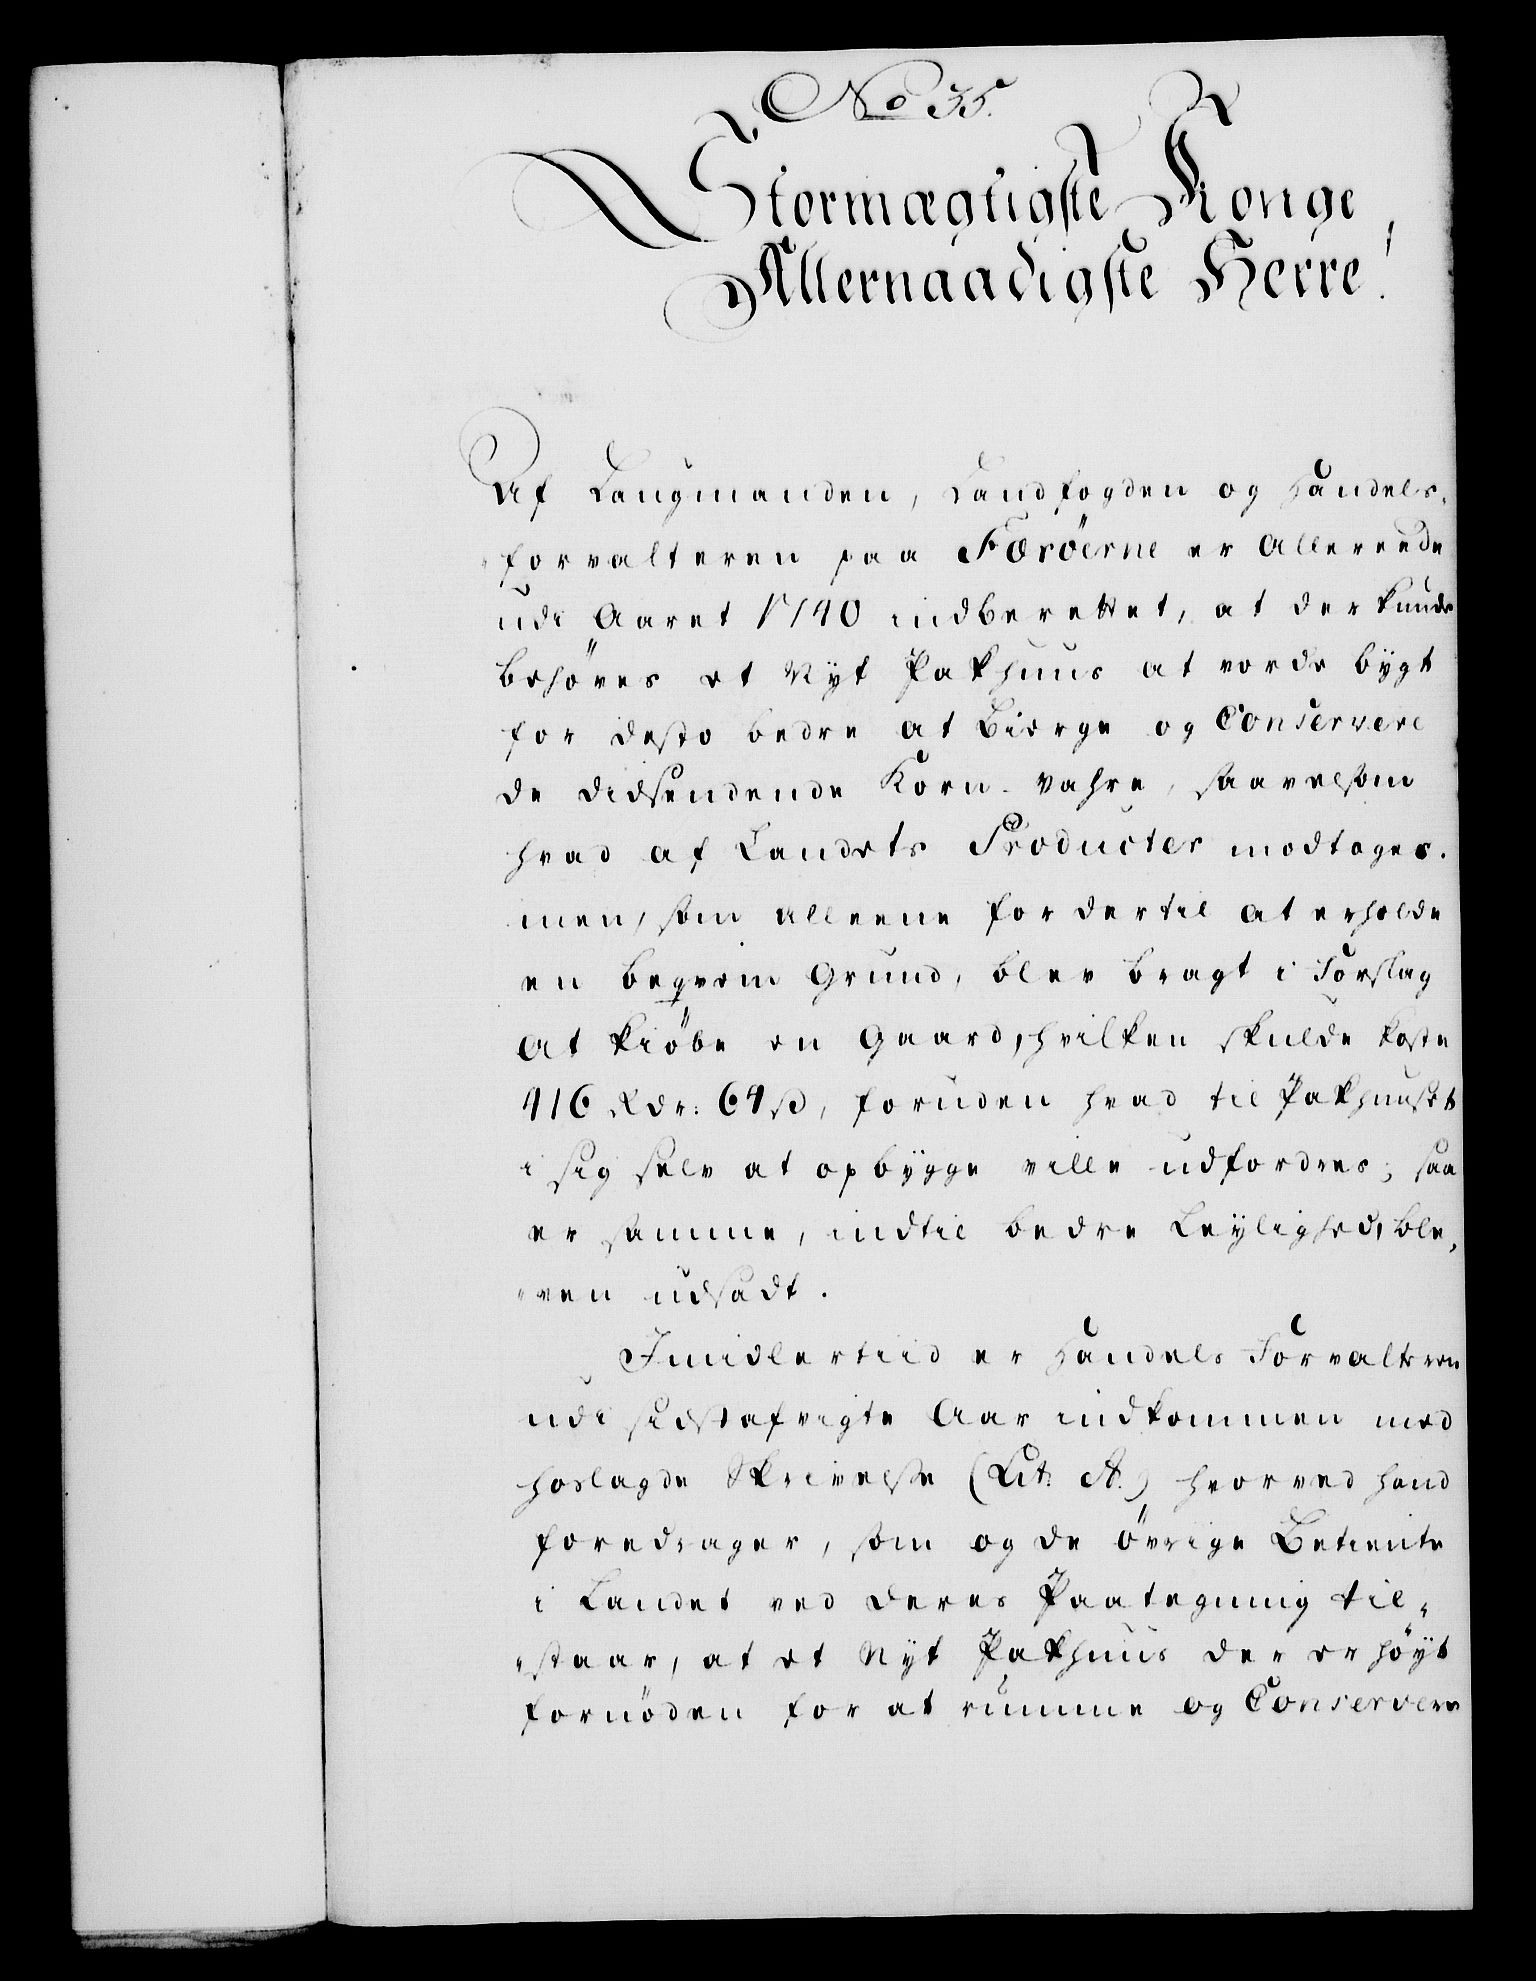 No 35.
Stormægtigste Konge
Allernaadigste Herre!
Af Laugmanden, Landfogden og Handels-
forvalteren paa Færöerne er Allereede
udi Aaret 1740 indberettet, at der kunde
behöves et Nyt Pakhuus at vorde bÿgt
for desto bedre at Bierge og Conservere
de didsendende Korn-Vahre, saavelsom
hvad af Landets Producter modtages.
men, som alleene for dertil at erholde
en beqvem Grund, blev bragt i Forslag
at kiöbe en Gaard, hvilken skulde koste
416 Rdr: 64 ß, foruden hvad til Pakhuuset
i sig selv at opbÿgge ville udfordres; saa
er samme, indtil bedre Leÿlighed, ble-
-ven udsadt.
Imidlertiid er Handels Forvalteren
udi sidstafvigte Aar indkommen med
hoslagde Skrivelse (Lit: A.) hvorved hand
foredrager, som og de övrige Betiente
i Landet ved deres Paategning til-
-staar, at et Nÿt Pakhuus der er höÿt
fornöden for at rumme og Conservere